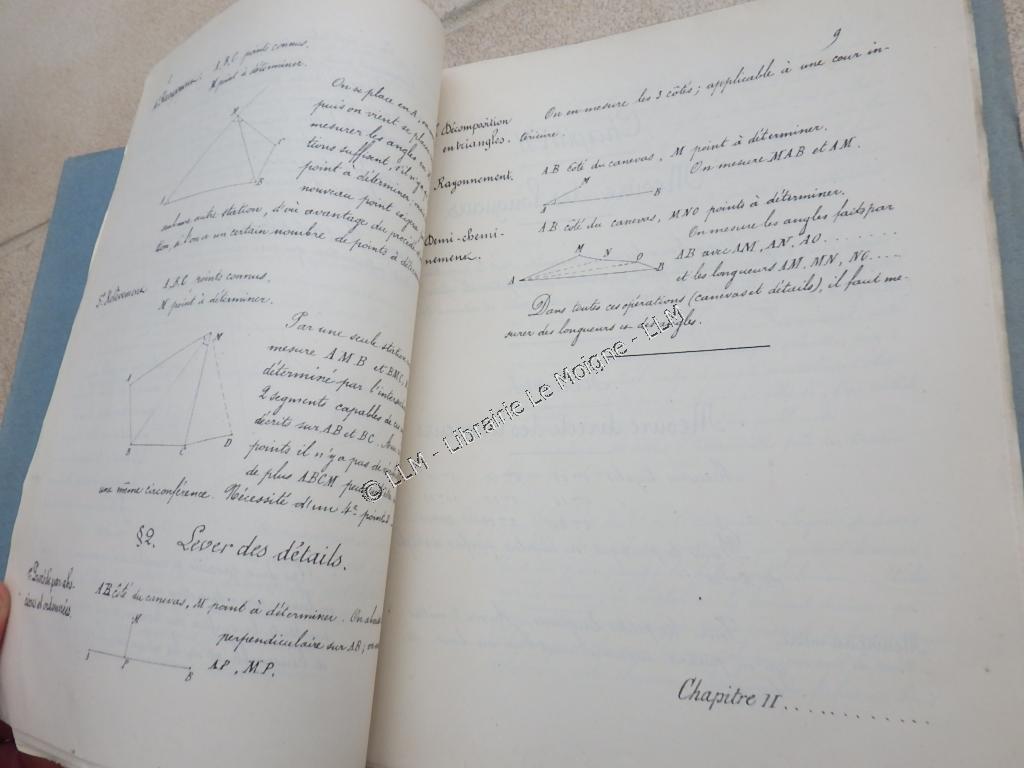 A, B, C points connus.
M point à déterminer.
On se place en A,
puis on vient se pla
mesurer les angles en
tions suffisent s'il n'y a
point à déterminer,
nouveau point exigera
M
C
A
B
autre station, d'où avantage du procédé
si l'on a un certain nombre de points à déter
3º Relèvement
A, B, C points connus,
M point à déterminer.
Par une seule station
mesure AMB et BMC,
déterminé par l'inters
2 segments capables de
décrits sur AB et BC.
points il n'y a pas de
de plus ABCM peu
une même circonférence. Nécessité d'un 4e point D.
M
A
B
C
D
§2. Lever des détails.
AB côté du canevas, M point à déterminer. On abai
perpendiculaire sur AB;
AP, MP.
M
A
P
B
9
Décomposition
en triangles.
On en mesure les 3 côtés; applicable à une cour in-
térieure.
Rayonnement.
AB côté du canevas, M point à déterminer.
On mesure MAB et AM.
M
A
B
Demi-chemi-
nement.
AB côté du canevas, MNO points à déterminer.
On mesure les angles faits par
AB avec AM, AN, AO........
et les longueurs AM, MN, NO....
M
N
O
A
B
Dans toutes ces opérations (canevas et détails), il faut me-
surer des longueurs et des angles.
Chapitre II..............
© LLM - Librairie Le Moigne - LLM